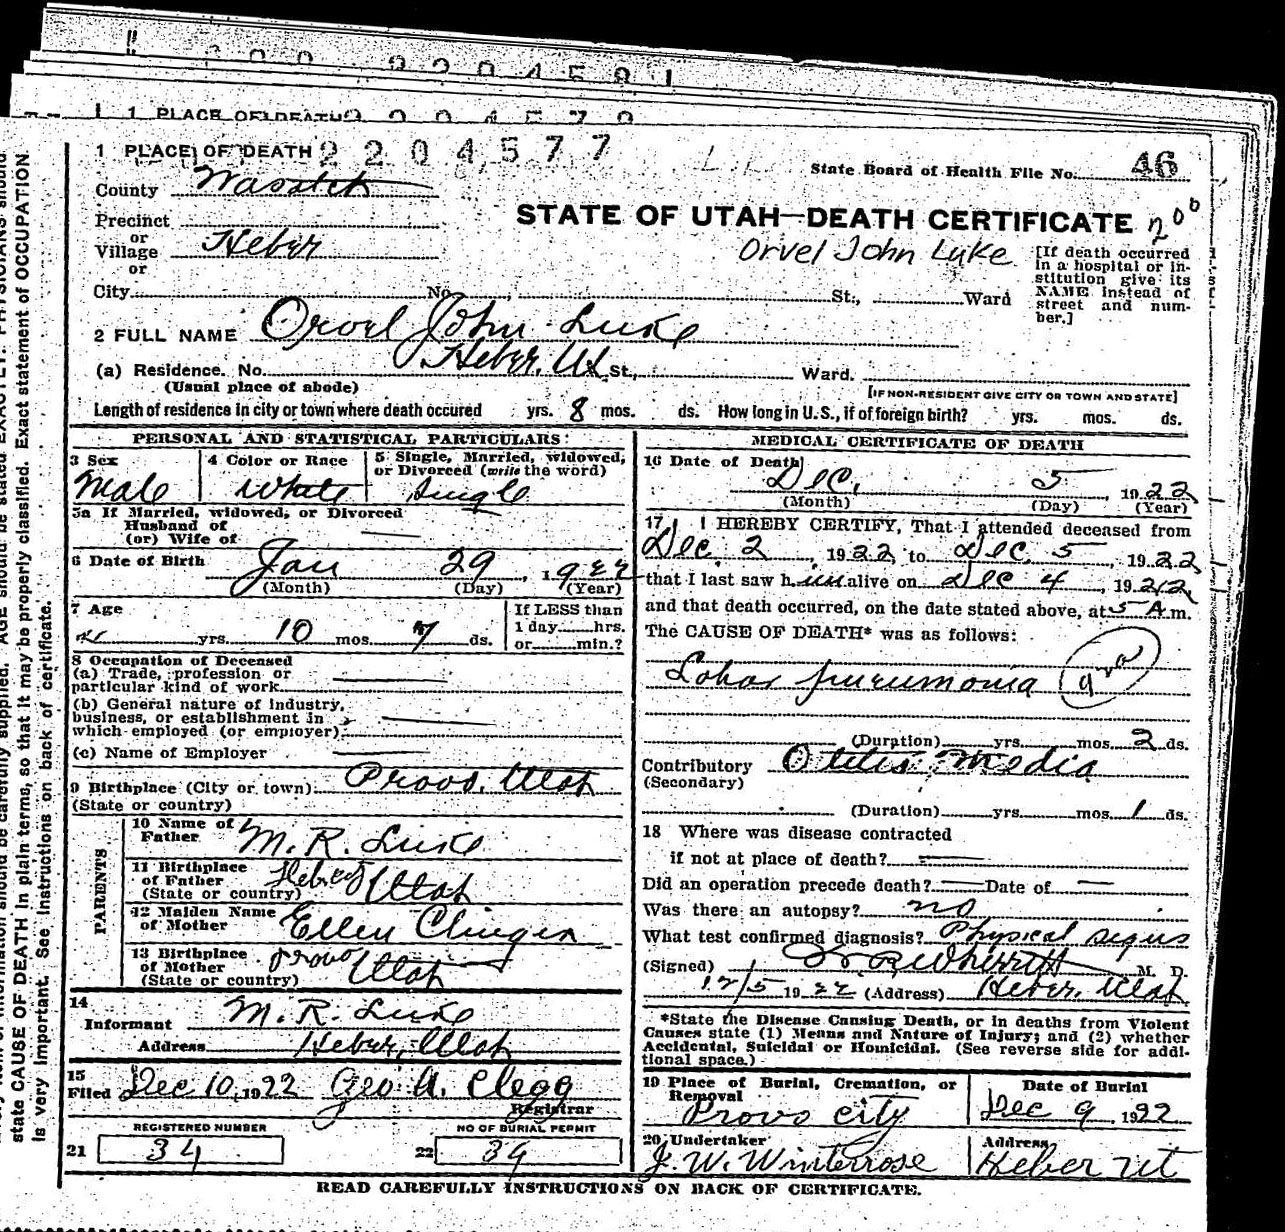 1 PLACE OF DEATH
1 PLACE OF DEATH 2204577
State Board of Health File No. 46
County Wasatch
STATE OF UTAH—DEATH CERTIFICATE
Precinct
or
Village Heber
or
Orvel John Luke
[If death occurred in a hospital or institution give its NAME instead of street and number.]
City No. St., Ward
2 FULL NAME Orvel John Luke
(a) Residence. No. Heber, Ut St., Ward.
(Usual place of abode)
[IF NON-RESIDENT GIVE CITY OR TOWN AND STATE]
Length of residence in city or town where death occured yrs. 8 mos. ds. How long in U.S., if of foreign birth? yrs. mos. ds.
PERSONAL AND STATISTICAL PARTICULARS:
3 Sex Male
4 Color or Race White
5 Single, Married, widowed, or Divorced (write the word) Single
5a If Married, widowed, or Divorced
Husband of
(or) Wife of
6 Date of Birth Jan 29, 1922
(Month) (Day) (Year)
7 Age yrs. 10 mos. 7 ds.
If LESS than
1 day hrs.
or min.?
8 Occupation of Deceased
(a) Trade, profession or
particular kind of work
(b) General nature of industry,
business, or establishment in
which employed (or employer)
(c) Name of Employer
9 Birthplace (City or town) Provo, Utah
(State or country)
PARENTS
10 Name of Father M. R. Luke
11 Birthplace of Father Heber Utah
(State or country)
12 Maiden Name of Mother Ellen
13 Birthplace of Mother Provo Utah
(State or country)
14
Informant M. R. Luke
Address Heber, Utah
15
Filed Dec 10, 1922 Geo A. Clegg
Registrar
REGISTERED NUMBER
21 34
NO OF BURIAL PERMIT
22 39
MEDICAL CERTIFICATE OF DEATH
16 Date of Death Dec. 5, 1922
(Month) (Day) (Year)
17 I HEREBY CERTIFY, That I attended deceased from
Dec. 2, 1922 to Dec. 5, 1922
that I last saw him alive on Dec 4, 1922
and that death occurred, on the date stated above, at 5 A m.
The CAUSE OF DEATH* was as follows:
Lobar pneumonia
(Duration) yrs. mos. 2 ds.
Contributory Otitis Media
(Secondary)
(Duration) yrs. mos. 1 ds.
18 Where was disease contracted
if not at place of death?
Did an operation precede death? Date of
Was there an autopsy? no
What test confirmed diagnosis? Physical signs
(Signed) M. D.
12/5 1922 (Address) Heber, Utah
*State the Disease Causing Death, or in deaths from Violent
Causes state (1) Means and Nature of Injury; and (2) whether
Accidental, Suicidal or Homicidal. (See reverse side for additional space.)
19 Place of Burial, Cremation, or Removal Provo city
Date of Burial Dec 9 1922
20 Undertaker J. W. Winterrose
Address Heber Ut
READ CAREFULLY INSTRUCTIONS ON BACK OF CERTIFICATE.
state CAUSE OF DEATH in plain terms, so that it may be properly classified. Exact statement of OCCUPATION
is very important. See instructions on back of certificate.